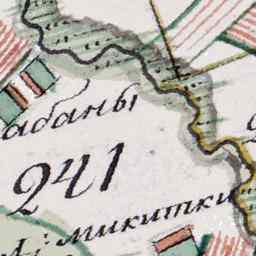 абаны
241
микитки